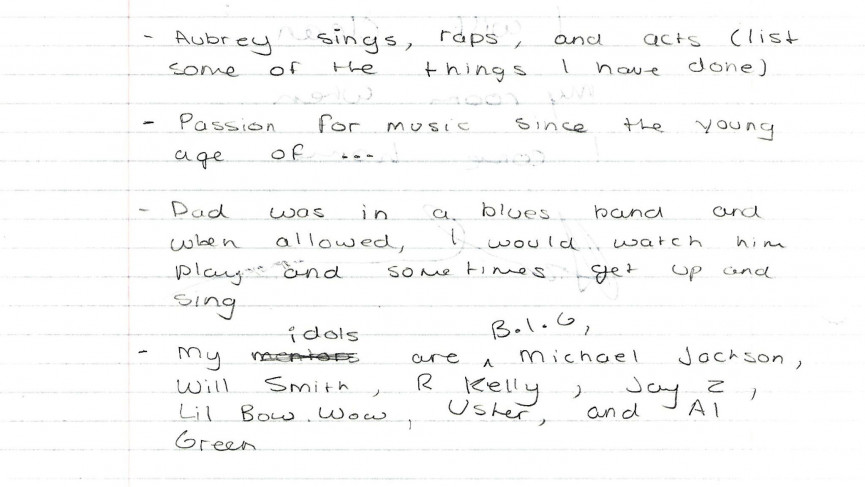 - Aubrey sings, raps, and acts (list
some of the things I have done)
- Passion for music since the young
age of ...
- Dad was in a blues band and
when allowed, I would watch him
play and sometimes get up and
sing
idols B.I.G,
- My mentors are ^ Michael Jackson,
Will Smith, R Kelly, Jay Z,
Lil Bow Wow, Usher, and Al
Green